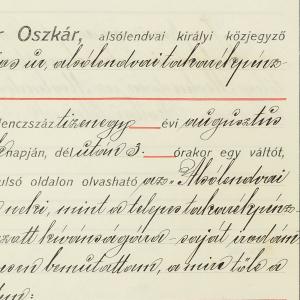 r Oszkár, alsólendvai királyi közjegyző
os úr, alsólendvai takarékpénz-
lenczszáz tizenegy évi augusztus
napján, dél után 3. órakor egy váltót,
ulsó oldalon olvasható az "Alsólendvai
neki, mint a telepes takarékpénz-
zott kívánságára - saját irodám
nem bemutattam, a mire tőle a